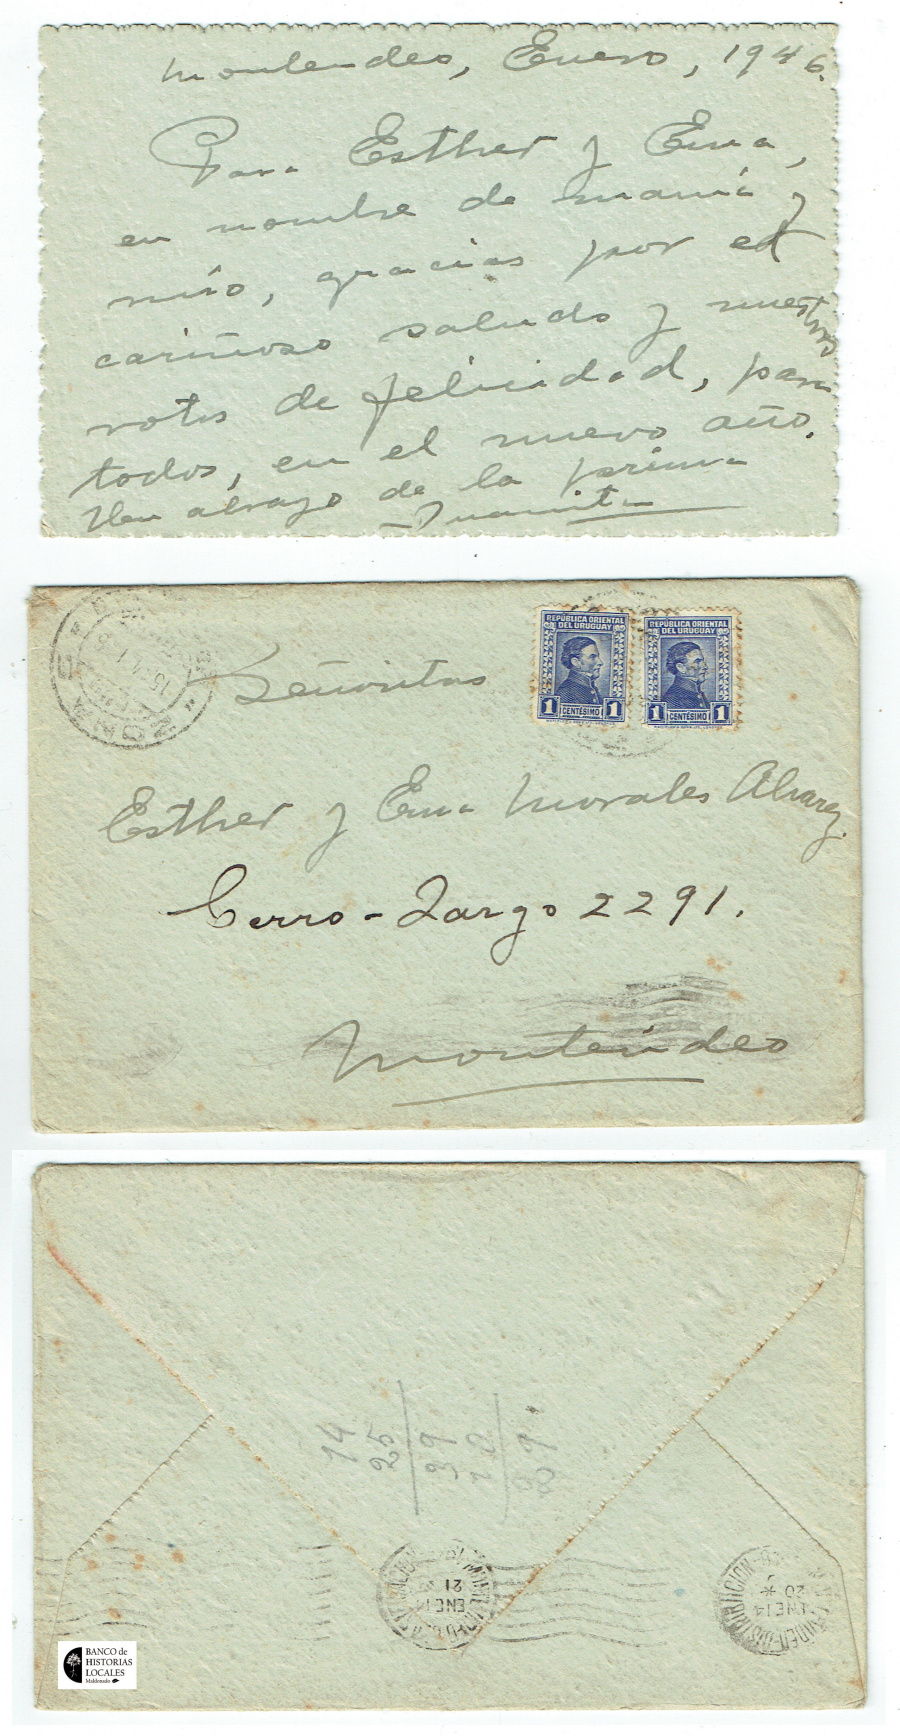 Montevideo, Enero, 1946.
Para Esther y Ema,
en nombre de mamá y
mío, gracias por el
cariñoso saludo y nuestros
votos de felicidad, para
todos, en el nuevo año.
Un abrazo de la prima
Juanita
REPÚBLICA ORIENTAL
DEL URUGUAY
1 CENTÉSIMO 1
REPÚBLICA ORIENTAL
DEL URUGUAY
1 CENTÉSIMO 1
Señoritas
Esther y Ema Morales Alvarez.
Cerro-Largo 2291.
Montevideo
14
25
39
89
21
ENE 14
20
ENE 14
DISTRIBUCION
BANCO de
HISTORIAS
LOCALES
Maldonado